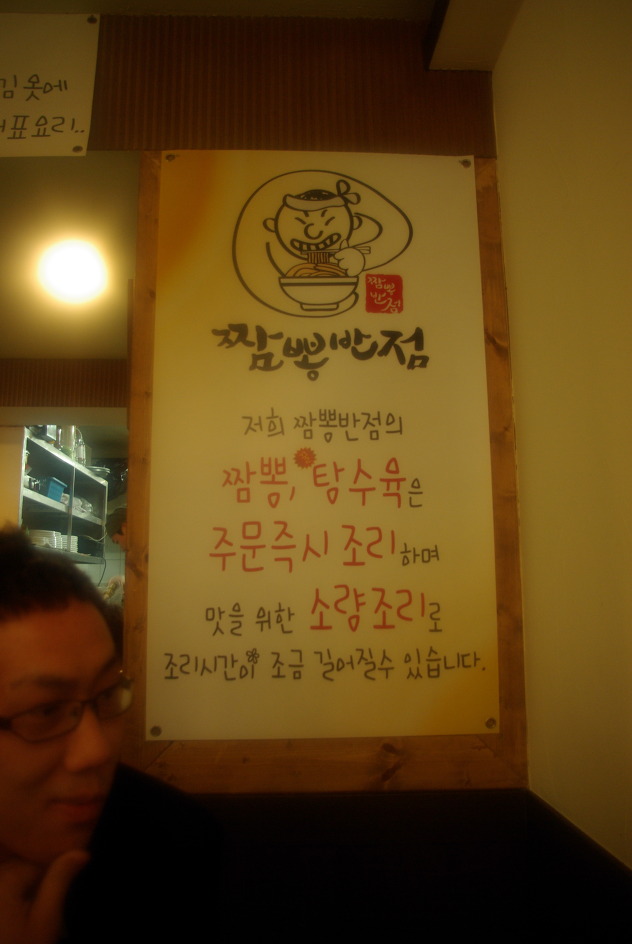 김 옷에
표요리..
짬뽕
반점
짬뽕반점
저희 짬뽕반점의
짬뽕, 탕수육은
주문즉시 조리하며
맛을 위한 소량조리로
조리시간이 조금 길어질수 있습니다.